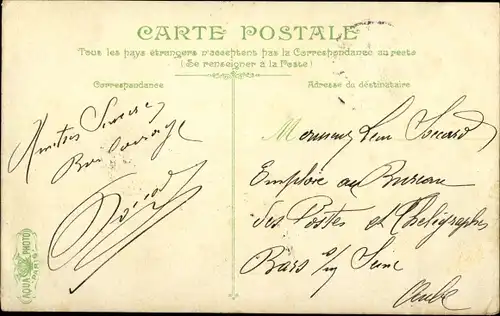 CARTE POSTALE
Tous les pays étrangers n'acceptent pas la Correspondance au recto
(Se renseigner à la Poste)
Correspondance
Adresse du déstinataire
Amitiés Sincères
Bon Courage
Monsieur Léon
Employé au Bureau
des Postes et Télégraphes
Bars s/ Seine
Aube
AQUA PHOTO
PARIS